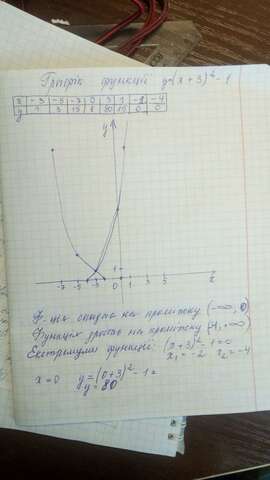 Графік функції y=(x+3)²-1
x -3 -5 -7 0 3 1 -2 -4
y 3 15 8 0 0
y
1
-7 -5 -3 0 1 3 5 x
Ф-ція спадає на проміжку (-∞, 0)
Функція зростає на проміжку
Екстремуми функції: (x+3)²-1=0
x₁=-2 x₂=-4
x=0 y=(0+3)²-1=
y=80